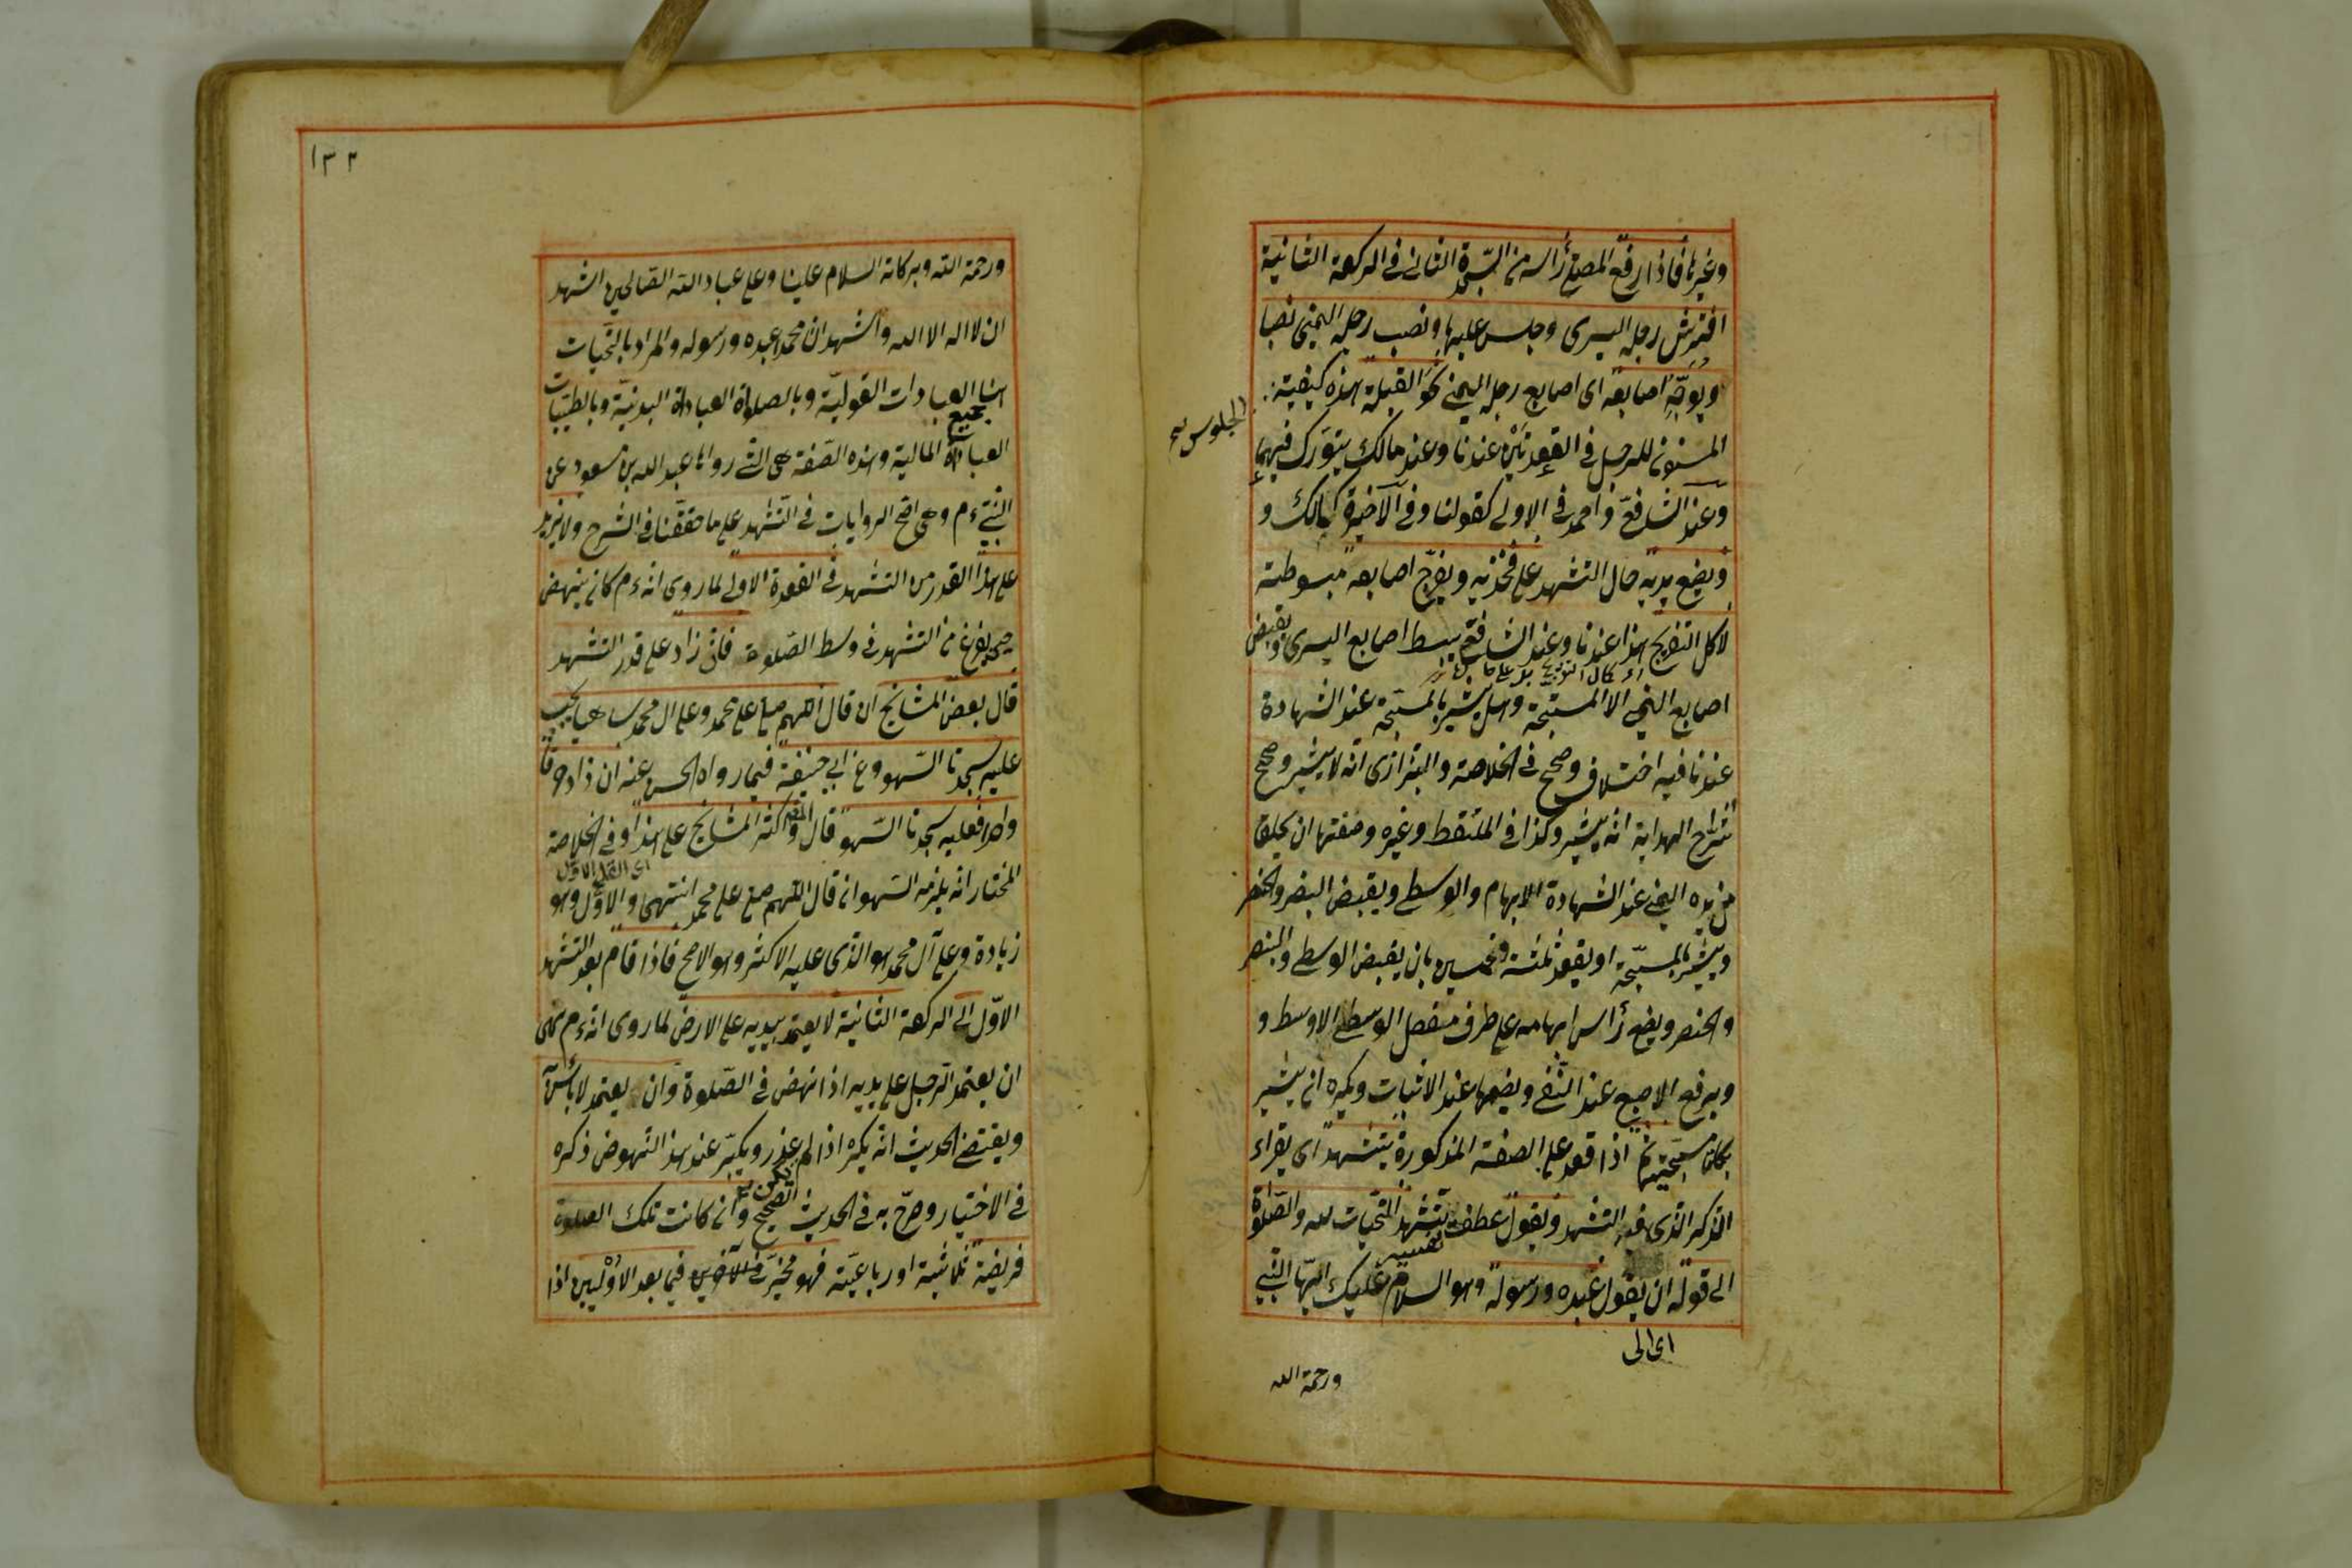 وغيرها فاذا رفع المصلي رأسه من السجدة الثاني في الركعة الثانية
افترش رجله اليسرى وجلس عليها ونصب رجله اليمنى نصبا
ويوجّه اصابعه اى اصابع رجله اليمنى نحو القبلة هذه كيفية
الجلوس صح
المسنون للرجل في القعدتين عندنا وعند مالك يتورك فيهما
وعند الشافعي واحمد في الاولى كقولنا وفي الآخيرة كمالك و
ويضع يديه حال التشهد على فخذيه ويفرّج اصابعه مبسوطة
لا كل التفريج هذا عندنا وعند الشافعي يبسط اصابع اليسرى ويقبض
اصابع اليمنى الا المسبّحة وهل يشير بالمسبّحة عند الشهادة
عندنا فيه اختلاف وصحح في الخلاصة والبزازى انه لا يشير وصحح
شراح الهداية انه يشير وكذا في الملتقط وغيره وصفتها ان يحلق
من يده اليمنى عند الشهادة الابهام والوسطى ويقبض البنصر والخنصر
ويشير بالمسبّحة او يعقد ثلثة وخمسين بان يقبض الوسطى والبنصر
والخنصر ويضع رأس ابهامه على طرف مفصل الوسطى الاوسط و
ويرفع الاصبع عند النّفي ويضعها عند الاثبات ويكره ان يشير
بكلتا مسبّحتيه ثم اذا قعد على الصفة المذكورة يتشهد اى يقراء
الذكر الذى فيه التشهد ويقول عطف تفسير يتشهد التحيّات لله والصّلوة
الى قوله ان يقول عبده ورسوله وهو السلام عليك ايّها النبي
اى الى
ورحمة الله
١٣٢
ورحمة الله وبركاته السلام علينا وعلى عباد الله الصّالحين اشهد
ان لا اله الا الله واشهد ان محمدا عبده ورسوله والمراد بالتّحيات
العبادات القوليّة وبالصلوات العبادات البدنيّة وبالطيّبات
جميع
العبادات المالية وهذه الصّفة هى التى رواها عبد الله بن مسعود عن
النبيّ ءم وهى اصح الروايات في التّشهد على ما حققنا في الشرح ولا يزيد
على هذا القدر من التشهد في القعدة الاولى لما روى انه ءم كان ينهض
حين يفرغ من التشهد في وسط الصّلوة فان زاد على قدر التشهد
قال بعض المشايخ ان قال اللهم صل على محمد وعلى ال محمد ساهيا يجب
عليه سجدتا السّهو وعن ابي حنيفة فيما رواه الحسن عنه ان زاد حرفا
واحدا فعليه سجدتا السّهو قال واكثر المشايخ على هذا وفي الخلاصة
اى القول الاول
المختار انه يلزمه السّهو ان قال اللهم صل على محمد انتهى والاوّل وهو
زيادة وعلى آل محمد هو الذى عليه الاكثر وهو الاصح فاذا قام بعد التشهد
الاوّل الى الركعة الثانية لا يعتمد بيديه على الارض لما روى انه ءم نهى
ان يعتمد الرجل على يديه اذا نهض في الصّلوة وان يعتمد لا بأس
ويقتضي الحديث انه يكره اذا لم يكن عذر ويكبّر عند هذا النّهوض ذكره
في الاختيار وصرّح به في الحديث الصحيح وان كانت تلك الصلوة
فريضة ثلاثية او رباعيّة فهو مخيّر في الآخريين فيما بعد الاوليين اذا